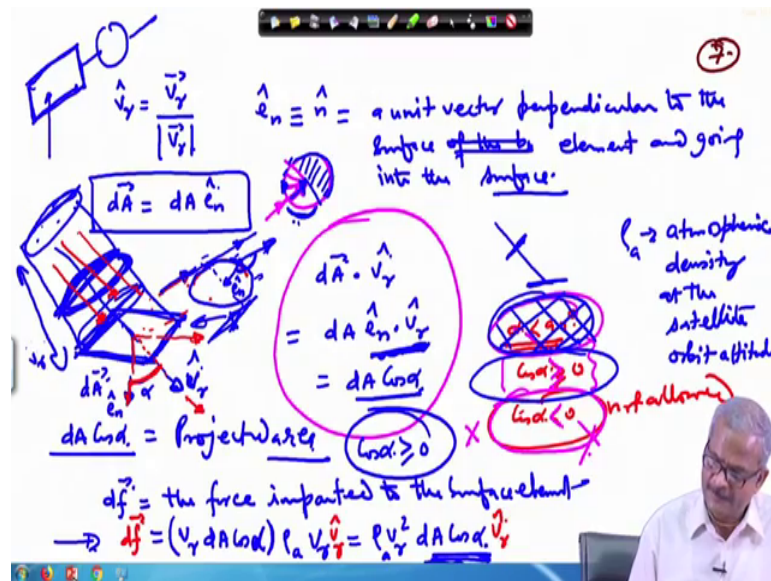 7.
v̂_r = v⃗_r / |v⃗_r|
ê_n ≡ n̂ = a unit vector perpendicular to the
surface of the element and going
into the surface.
dA⃗ = dA ê_n
dA⃗ · v̂_r
= dA ê_n · v̂_r
= dA Cosα
Cosα ≥ 0
Cosα < 0 not allowed
ρ_a → atmospheric
density
at the
satellite
orbit altitude
ê_n
dA⃗
ê_n
α
v̂_r
dA Cosα = Projected area
Cosα ≥ 0
df⃗ = the force imparted to the surface element
→ df⃗ = (v_r dA Cosα) ρ_a v_r v̂_r = ρ_a v_r² dA Cosα v̂_r